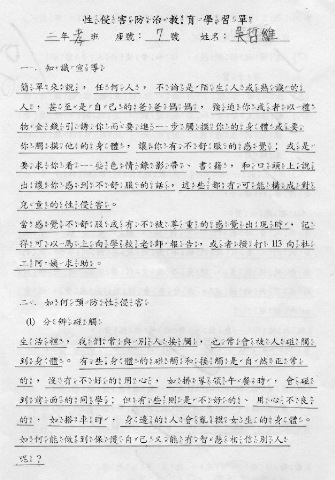 性侵害防治教育學習單
二年孝班 座號:7號 姓名:吳哲維
一、知識宣導
簡單來說,任何人,不論是陌生人或熟識的
人,甚至是自己的爸爸媽媽,強迫你或者以禮
物金錢引誘你而要進一步觸摸你的身體或要
你觸摸他的身體,讓你有不舒服的感覺;或是
要求你看一些色情錄影帶、書籍,和口頭上說
出讓你感到不舒服的話,這些都有可能構成對
兒童的性侵害。
當感覺不舒服或有不被尊重的感覺出現時,記
得可以馬上向學校老師報告,或者撥打113向社
工阿姨求助。
二、如何預防性侵害
(1) 分辨碰觸
生活裡,我們常與別人接觸,也常會被人碰觸
到身體。有些身體的碰觸和接觸是自然正常
的,沒有不好的用心,如排隊領午餐時,會碰
到前面的同學;但有些則是不好的、用心不良
的,如搭車時,身邊的人會亂摸女生的身體。
如何能做到保護自己又能有智慧相信別人
呢?